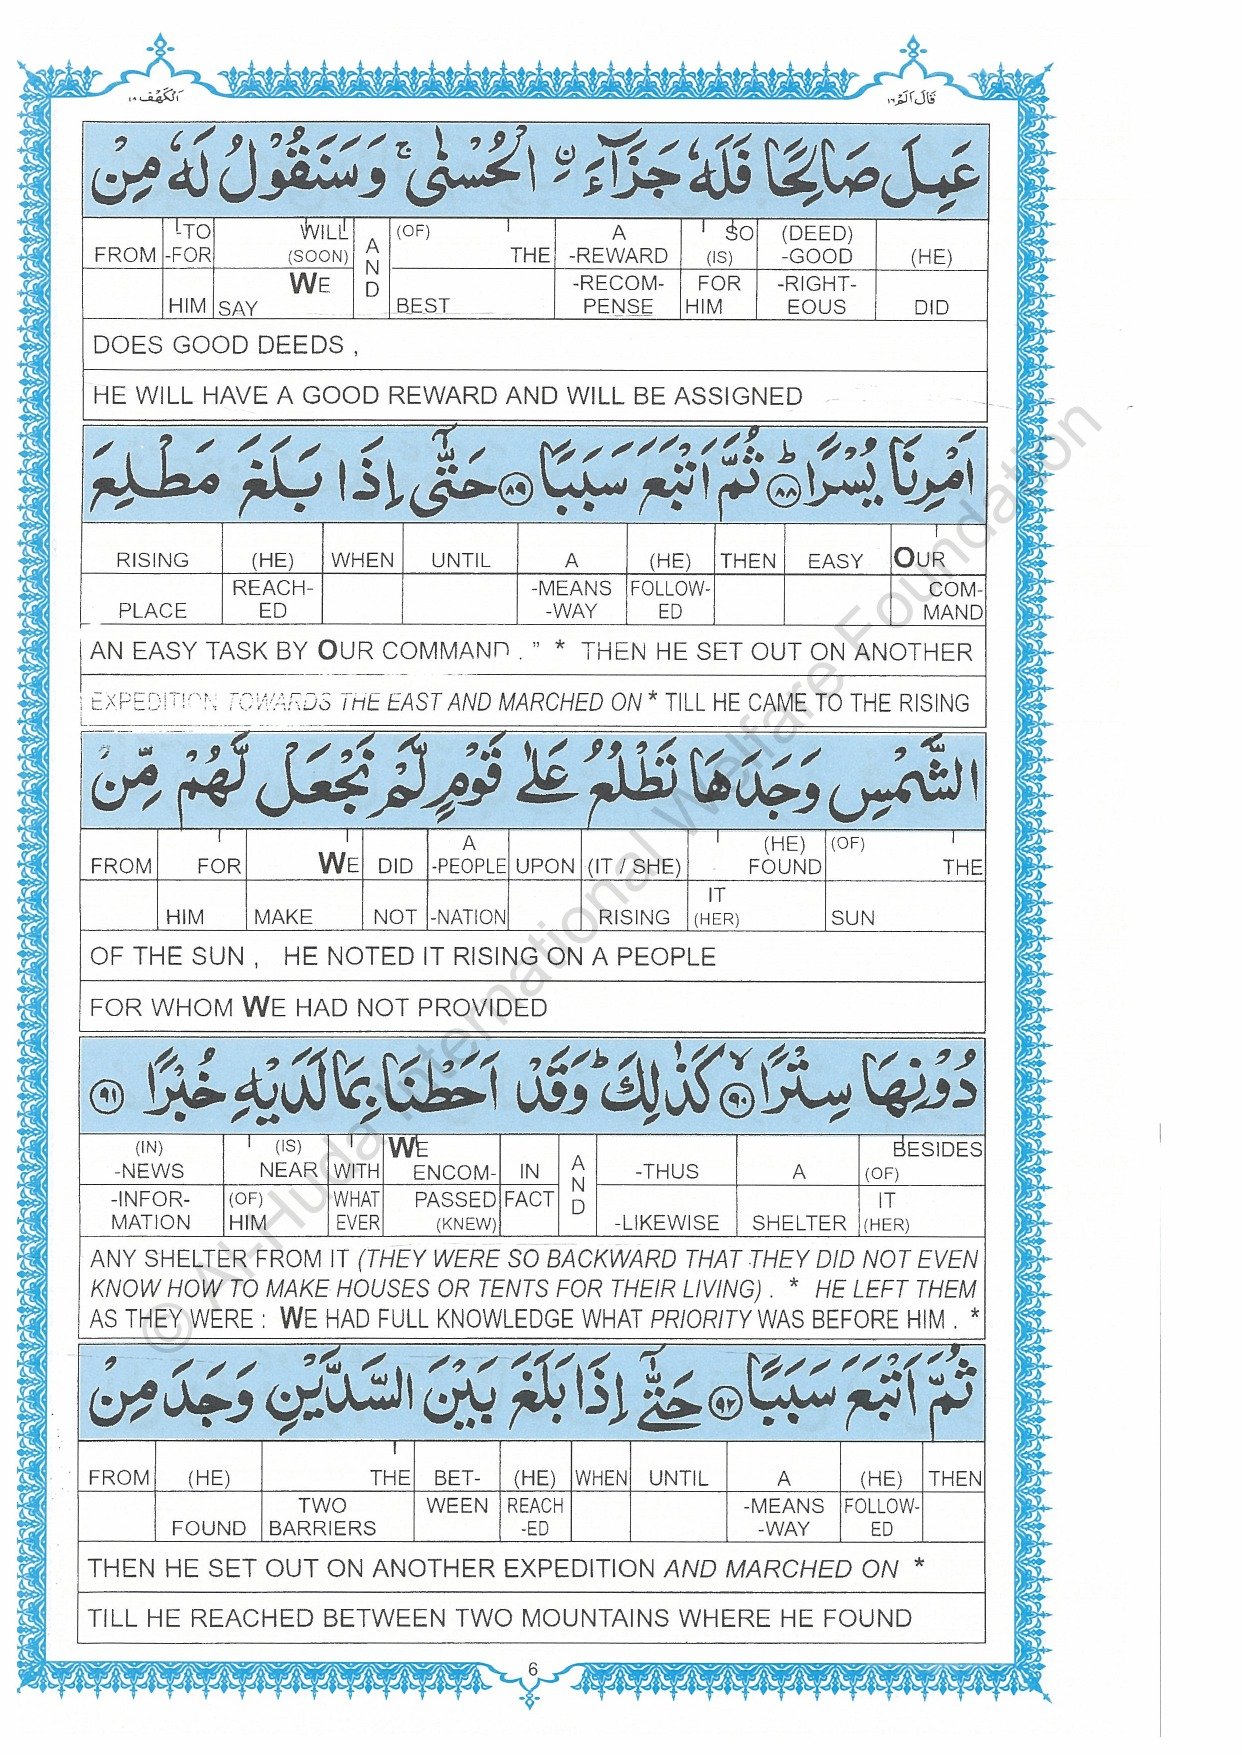 الكهف ١٨
قال الم ١٦
عَمِلَ صَالِحًا فَلَهٗ جَزَآءَ ۨ الْحُسْنٰى ۚ وَسَنَقُوْلُ لَهٗ مِنْ
FROM -TO WILL A (OF) A SO (DEED) (HE)
-FOR (SOON) N THE -REWARD (IS) -GOOD
HIM SAY WE D BEST -RECOM- FOR -RIGHT- DID
PENSE HIM EOUS
DOES GOOD DEEDS ,
HE WILL HAVE A GOOD REWARD AND WILL BE ASSIGNED
اَمْرِنَا يُسْرًا ؕ ٨٨ ثُمَّ اَتْبَعَ سَبَبًا ٨٩ حَتّٰٓى اِذَا بَلَغَ مَطْلِعَ
RISING (HE) WHEN UNTIL A (HE) THEN EASY OUR
REACH- -MEANS FOLLOW- COM-
PLACE ED -WAY ED MAND
AN EASY TASK BY OUR COMMAND . ” * THEN HE SET OUT ON ANOTHER
EXPEDITION TOWARDS THE EAST AND MARCHED ON * TILL HE CAME TO THE RISING
الشَّمْسِ وَجَدَهَا تَطْلُعُ عَلٰى قَوْمٍ لَّمْ نَجْعَلْ لَّهُمْ مِّنْ
A (HE) (OF)
FROM FOR WE DID -PEOPLE UPON (IT / SHE) FOUND THE
IT
HIM MAKE NOT -NATION RISING (HER) SUN
OF THE SUN , HE NOTED IT RISING ON A PEOPLE
FOR WHOM WE HAD NOT PROVIDED
دُوْنِهَا سِتْرًا ۙ ٩٠ كَذٰلِكَ ؕ وَقَدْ اَحَطْنَا بِمَا لَدَيْهِ خُبْرًا ٩١
(IN) (IS) WE A BESIDES
-NEWS NEAR WITH ENCOM- IN N -THUS A (OF)
-INFOR- (OF) WHAT PASSED FACT D IT
MATION HIM EVER (KNEW) -LIKEWISE SHELTER (HER)
ANY SHELTER FROM IT (THEY WERE SO BACKWARD THAT THEY DID NOT EVEN
KNOW HOW TO MAKE HOUSES OR TENTS FOR THEIR LIVING) . * HE LEFT THEM
AS THEY WERE : WE HAD FULL KNOWLEDGE WHAT PRIORITY WAS BEFORE HIM . *
ثُمَّ اَتْبَعَ سَبَبًا ٩٢ حَتّٰٓى اِذَا بَلَغَ بَيْنَ السَّدَّيْنِ وَجَدَ مِنْ
FROM (HE) THE BET- (HE) WHEN UNTIL A (HE) THEN
TWO WEEN REACH -MEANS FOLLOW-
FOUND BARRIERS -ED -WAY ED
THEN HE SET OUT ON ANOTHER EXPEDITION AND MARCHED ON *
TILL HE REACHED BETWEEN TWO MOUNTAINS WHERE HE FOUND
6
© Al-Huda International Welfare Foundation